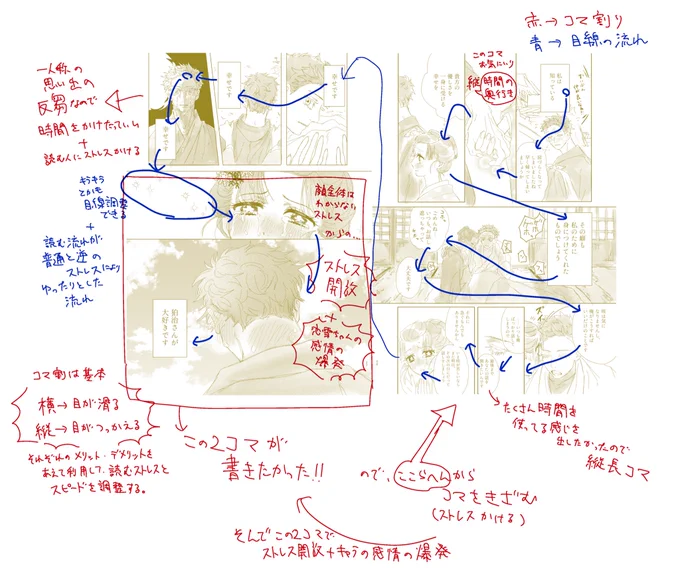 赤→コマ割り
青→目線の流れ
このコマ
お気に入り
縦
時間の
奥行き
私は
知っている
貴方の
優しさを
一身に受ける
幸せを
その癖も
私のために
身につけてくれた
ものでしょう
たくさん時間を
使ってる感じを
出したかったので
縦長コマ
一人称の
思い出の
反芻なので
時間をかけたっていい
+
読む人にストレスかける
幸せです
幸せです
幸せです
キラキラ
とかも
目線調整
できる
+
読む流れが
普通と逆の
ストレスにより
ゆったりとした
流れ
顔全体は
わからない
ストレス
からの…
ストレス
開放
+
恋雪ちゃんの
感情の
爆発
狛治さんが
大好きです
コマ割は基本
横→目が滑る
縦→目がつっかえる
それぞれのメリット・デメリットを
あえて利用して、読むストレスと
スピードを調整する。
この2コマが
書きたかった!!
ので、ここらへんから
コマをきざむ
(ストレスかける)
そんでこの2コマで
ストレス開放+キャラの感情の爆発